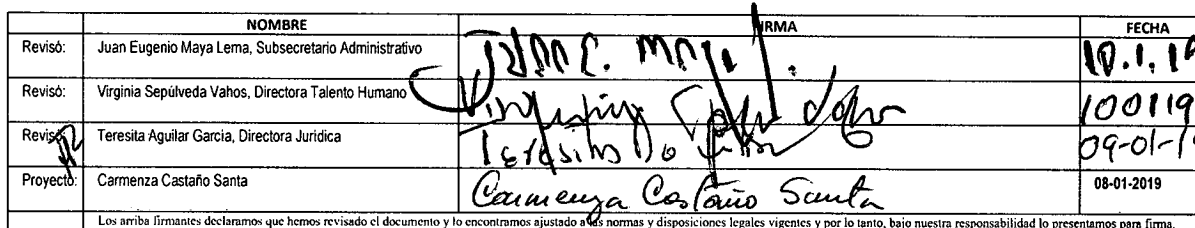 NOMBRE FIRMA FECHA
Revisó: Juan Eugenio Maya Lema, Subsecretario Administrativo Juan E. Maya L. 10.1.19
Revisó: Virginia Sepúlveda Vahos, Directora Talento Humano 100119
Revisó: Teresita Aguilar García, Directora Jurídica 09-01-19
Proyectó: Carmenza Castaño Santa Carmenza Castaño Santa 08-01-2019
Los arriba firmantes declaramos que hemos revisado el documento y lo encontramos ajustado a las normas y disposiciones legales vigentes y por lo tanto, bajo nuestra responsabilidad lo presentamos para firma.